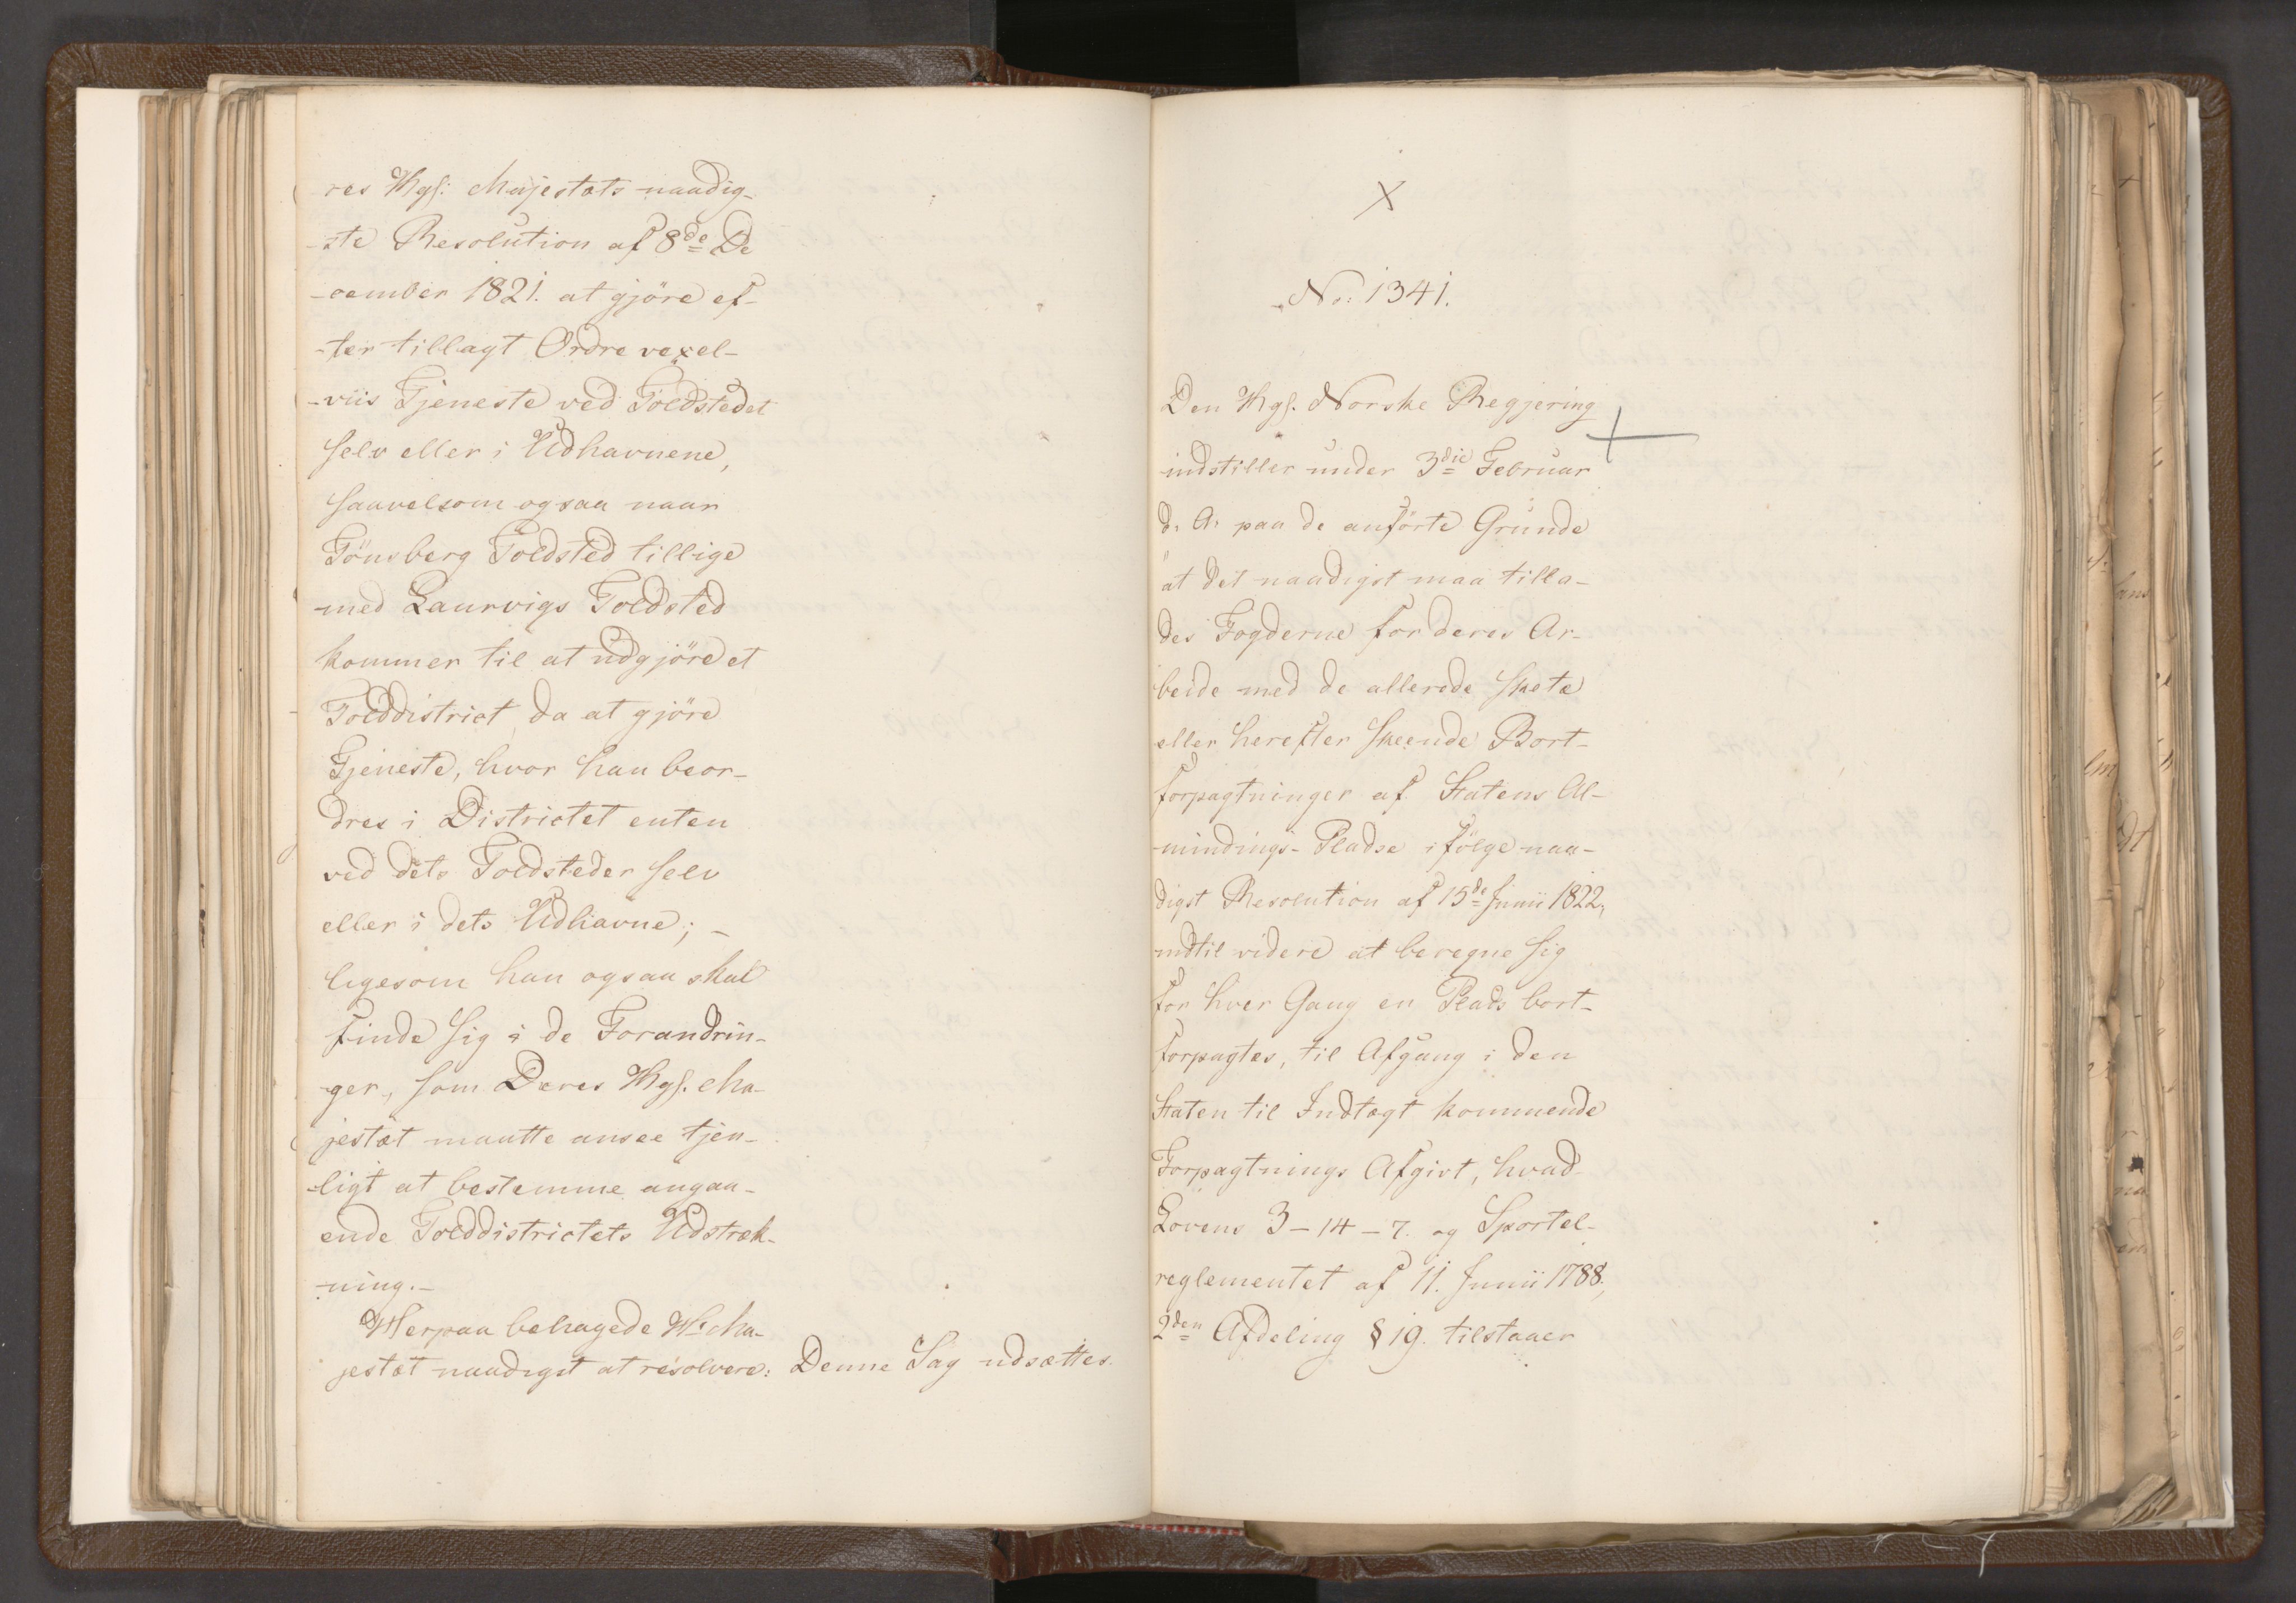 res Kgl: Majestæts naadig-
ste Resolution af 8de De
-cember 1821. at gjöre ef-
-ter tillagt Ordre vexel-
-viis Tjeneste ved Toldstedet
selv eller i Udhavnene,
saavelsom ogsaa naar
Tönsberg Toldsted tillige
med Laurvigs Toldsted
kommer til at udgjöre et
Tolddistrict, da at gjöre
Tjeneste, hvor han beor-
dres i Districtet enten
ved dets Toldsteder selv
eller i dets Udhavne; -
ligesom han ogsaa skal
finde sig i de Forandrin-
-ger, som Deres Kgl. Ma-
jestæt maatte ansee tjen-
-ligt at bestemme angaa-
ende Tolddistrictets Udstræk-
-ning.-
Herpaa behagede Hs Ma-
jestæt naadigst at resolvere: Denne Sag udsættes.
X
No: 1341.
Den Kgl. Norske Regjering
indstiller under 3die Februar
d: A: paa de anförte Grunde
at det naadigst maa tilla-
des Fogderne for deres Ar-
beide med de allerede skete
eller herefter skeende Bort-
forpagtninger af Statens Al-
mindings- Pladse ifölge naa-
digst Resolution af 15de Junii 1822,
indtil videre at beregne sig
for hver Gang en Plads bort-
forpagtes, til Afgang i den
Staten til Indtægt kommende
Forpagtnings Afgivt, hvad
Lovens 3 - 14 - 7. og Sportel-
reglementet af 11. Junii 1788,
2den Afdeling § 19. tilstaaer